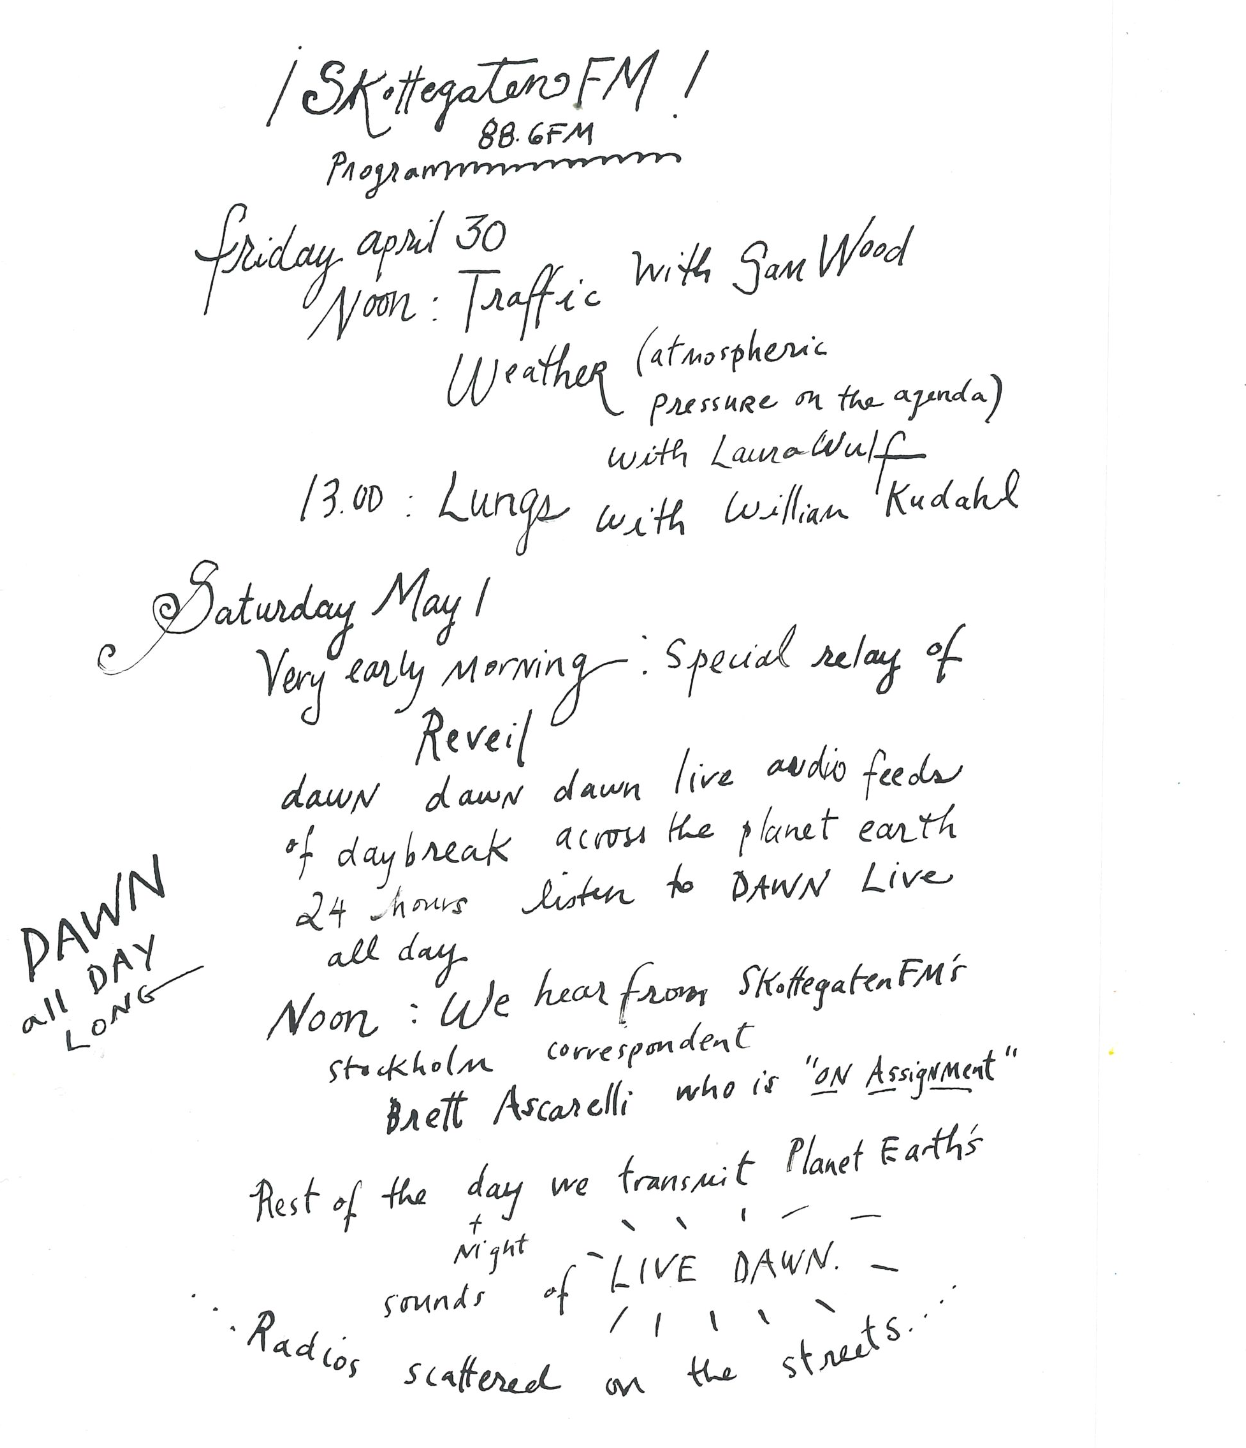 ¡SKottegatenFM!
88.6FM
Programmmmmmmm
friday april 30
Noon: Traffic with Sam Wood
Weather (atmospheric
pressure on the agenda)
with Laura Wulf
13.00: Lungs with William Kudahl
Saturday May 1
Very early Morning: Special relay of
Reveil
dawn dawn dawn live audio feeds
of daybreak across the planet earth
24 hours listen to DAWN Live
all day
DAWN
all DAY
LONG
Noon: We hear from SKottegatenFM's
stockholm correspondent
Brett Ascarelli who is "ON Assignment"
Rest of the day we transmit Planet Earth's
+
Night
sounds of LIVE DAWN.
...Radios scattered on the streets....